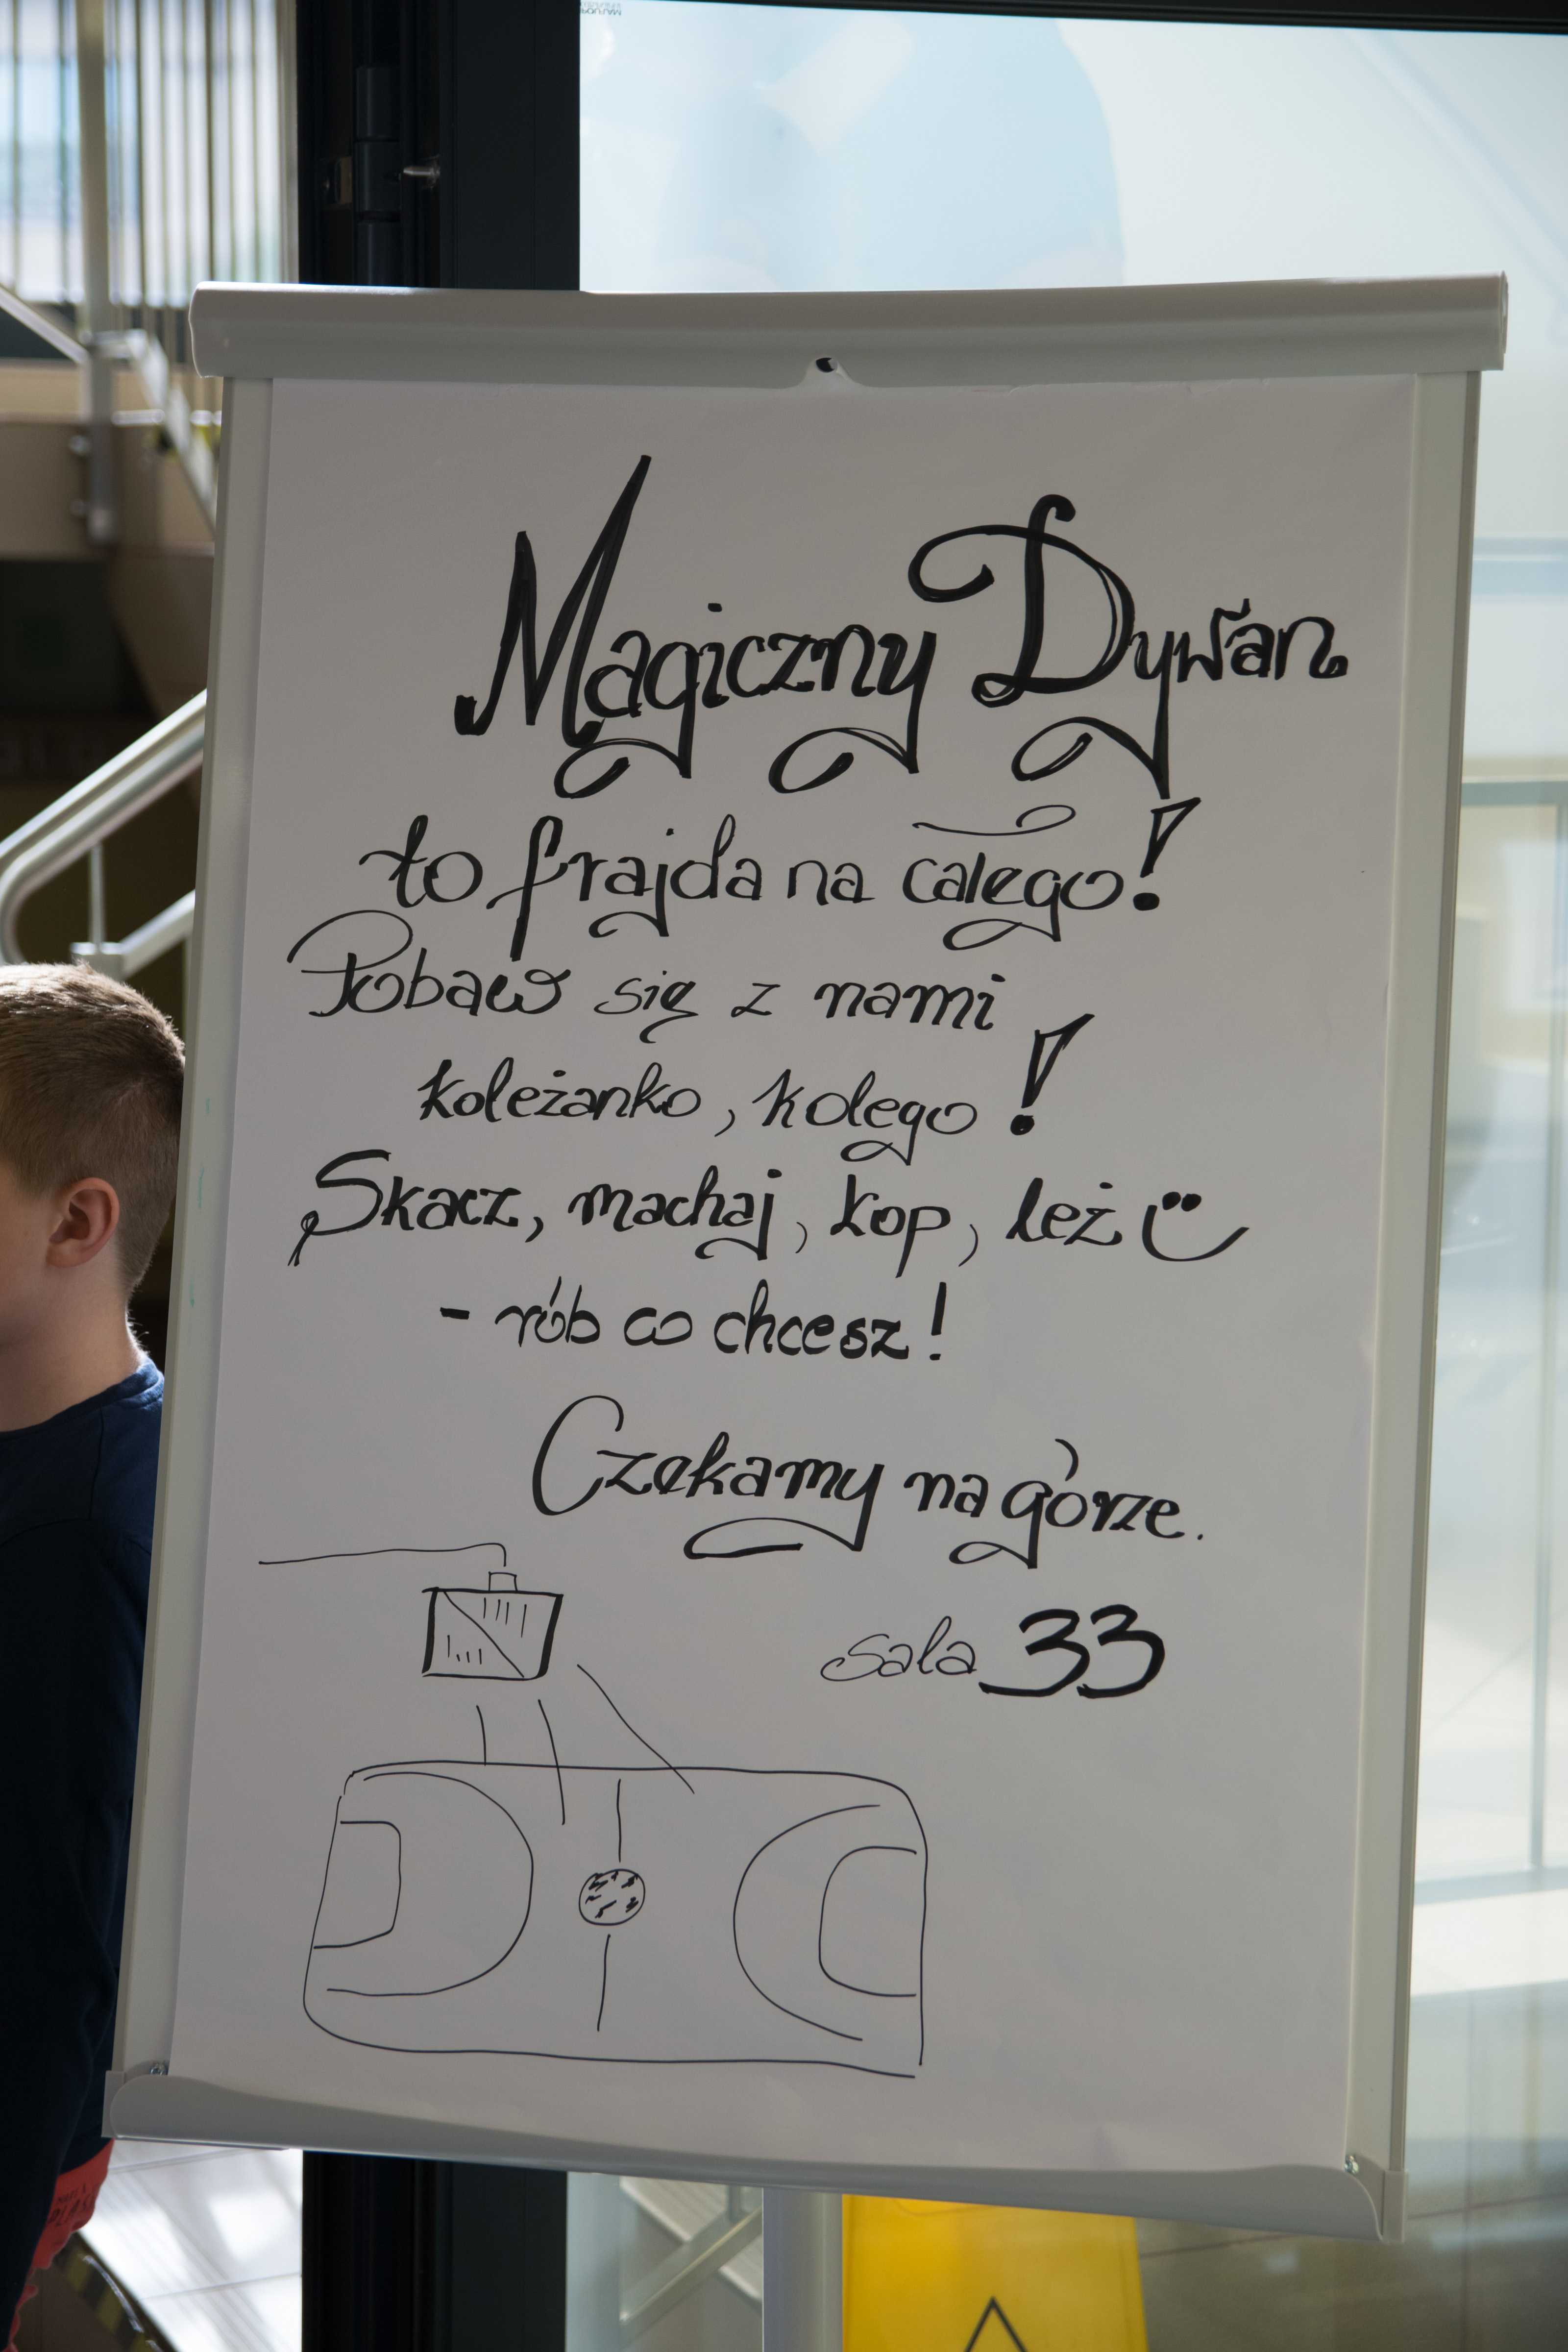 Magiczny Dywan
to frajda na całego!
Pobaw się z nami
koleżanko, kolego!
Skacz, machaj, kop, leż
- rób co chcesz!
Czekamy na górze.
sala 33